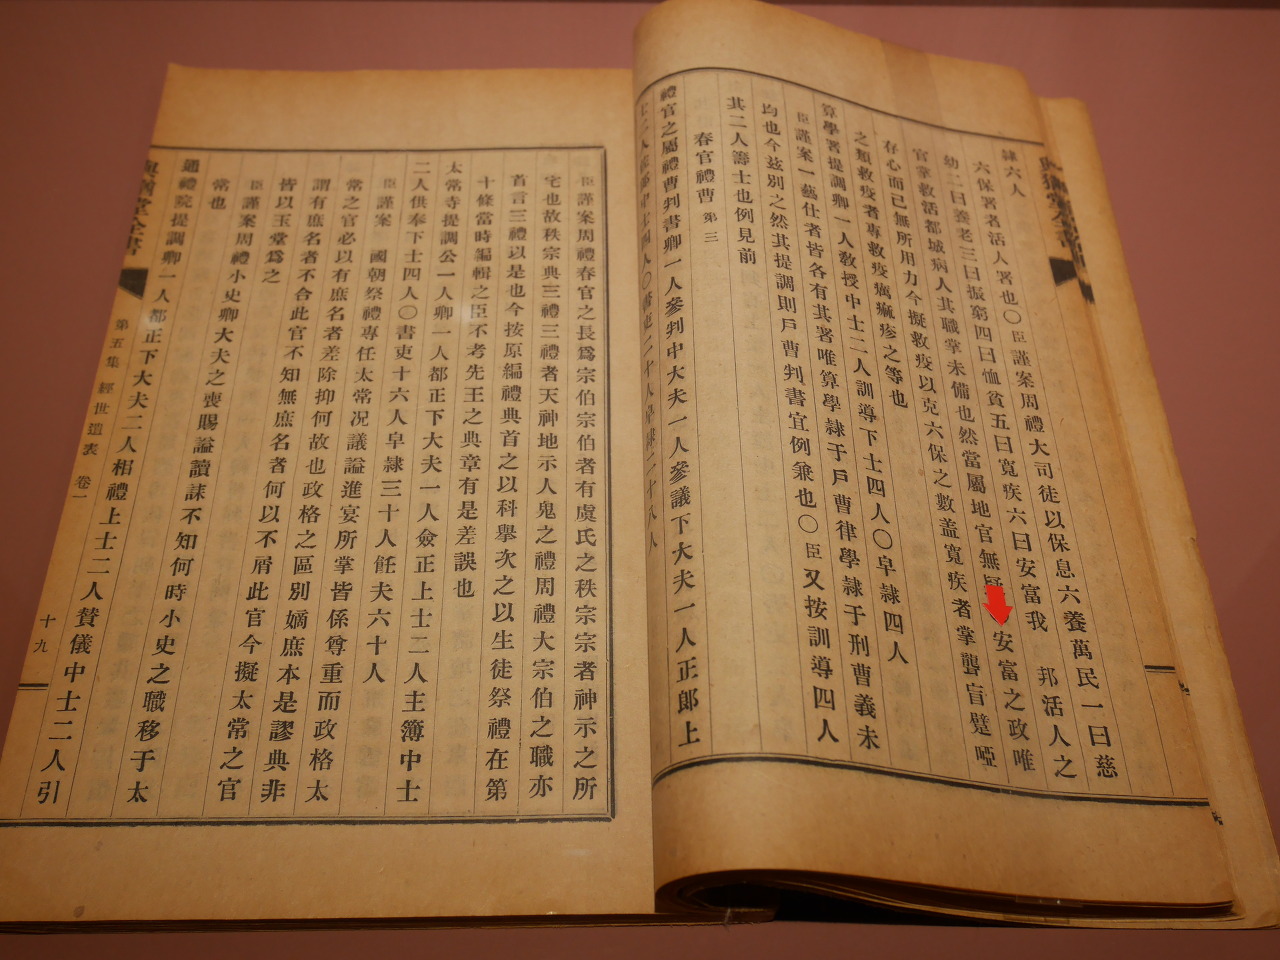 與猶堂全書
隷六人
六保署者活人署也〇臣謹案周禮大司徒以保息六養萬民一曰慈
幼二曰養老三曰振窮四曰恤貧五曰寬疾六曰安富我 邦活人之
官掌救活都城病人其職掌未備也然當屬地官無疑 安富之政唯
存心而已無所用力今擬救疫以克六保之數盖寬疾者掌聾盲躄啞
之類救疫者專救疫癘痲疹之等也
算學署提調卿一人敎授中士二人訓導下士四人〇皁隷四人
臣謹案一藝仕者皆各有其署唯算學隷于戶曹律學隷于刑曹義未
均也今玆別之然其提調則戶曹判書宜例兼也〇臣又按訓導四人
其二人籌士也例見前
春官禮曹第三
禮官之屬禮曹判書卿一人參判中大夫一人參議下大夫一人正郎上
士二人佐郎中士四人〇書吏二十人皁隷二十八人
臣謹案周禮春官之長爲宗伯宗伯者有虞氏之秩宗宗者神示之所
宅也故秩宗典三禮三禮者天神地示人鬼之禮周禮大宗伯之職亦
首言三禮以是也今按原編禮典首之以科擧次之以生徒祭禮在第
十條當時編輯之臣不考先王之典章有是差誤也
太常寺提調公一人卿一人都正下大夫一人僉正上士二人主簿中士
二人供奉下士四人〇書吏十六人皁隷三十人飪夫六十人
臣謹案 國朝祭禮專任太常况議謚進宴所掌皆係尊重而政格太
常之官必以有庶名者差除抑何故也政格之區別嫡庶本是謬典非
謂有庶名者不合此官不知無庶名者何以不屑此官今擬太常之官
皆以玉堂爲之
臣謹案周禮小史卿大夫之喪賜謚讀誄不知何時小史之職移于太
常也
通禮院提調卿一人都正下大夫二人相禮上士二人賛儀中士二人引
與猶堂全書
第五集 經世遺表 卷一
十九